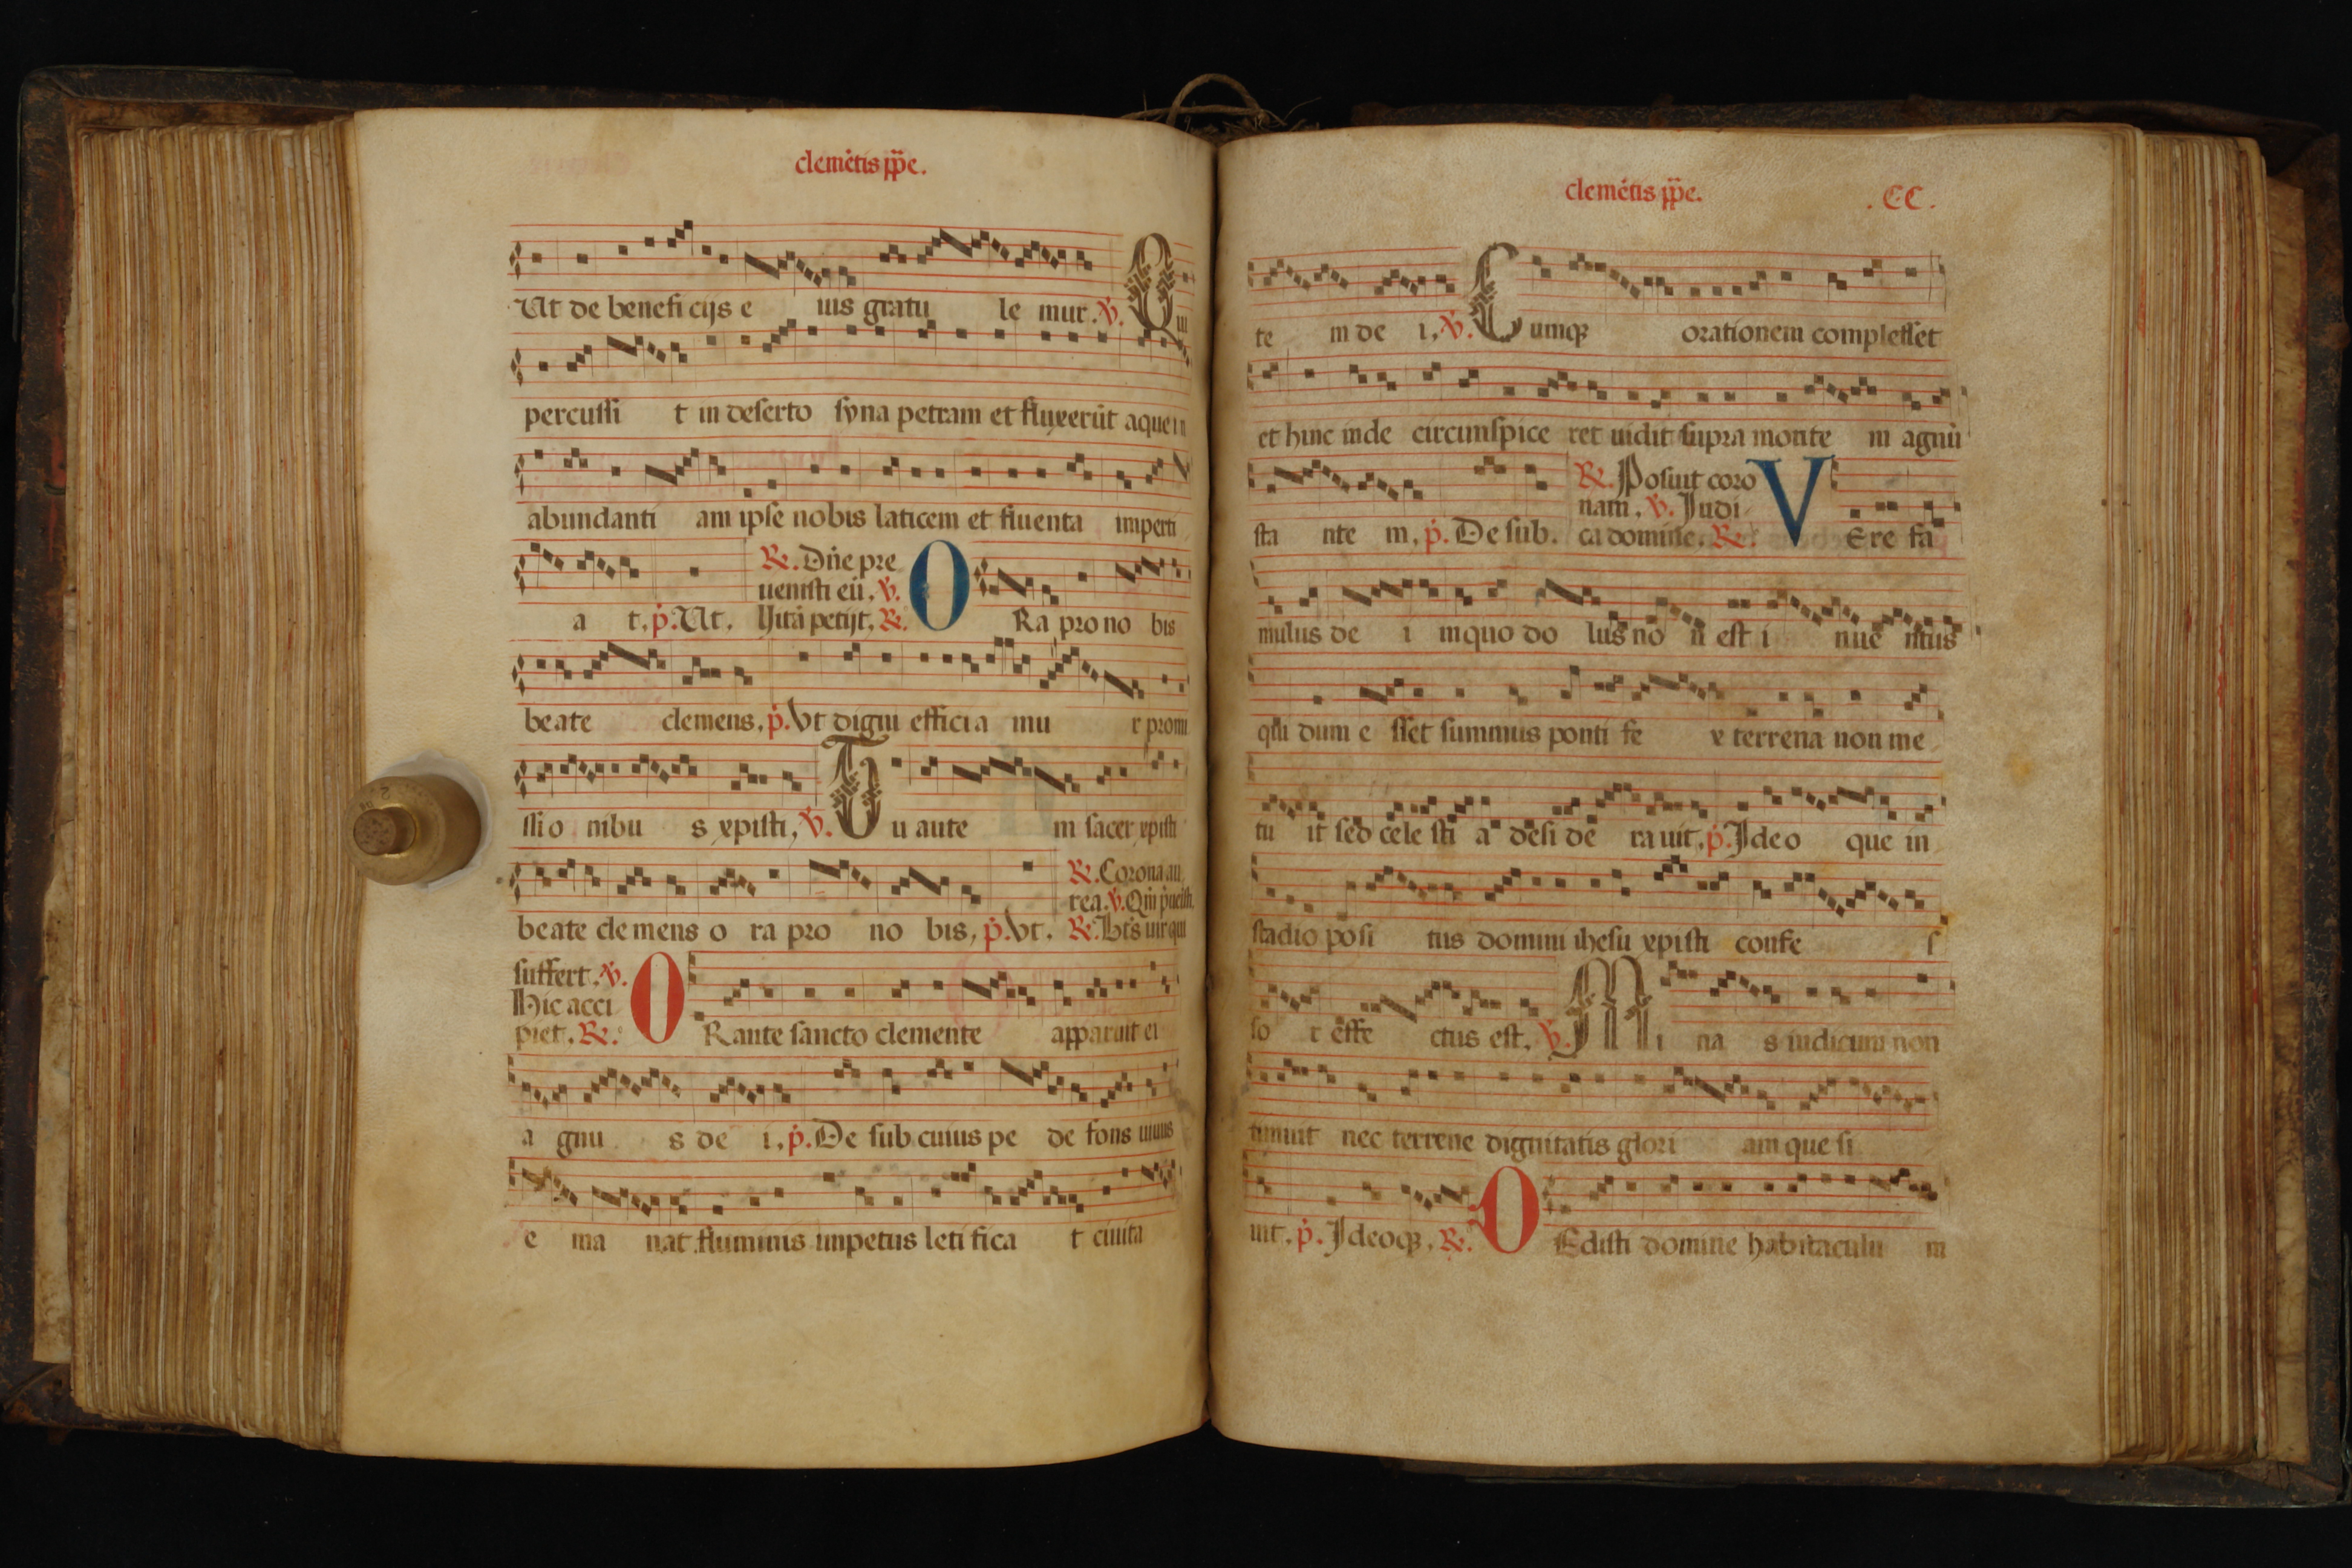 clemẽtis pp̃e.
Ut de benefi cijs e ius gratu le mur. ℣. Qui
percussi t in deserto syna petram et fluxerũt aque in
abundanti am ipse nobis laticem et fluenta imperti
℞. Dñe pre
uenisti eũ. ℣.
a t. p̃. Ut. Uitã petijt. ℞. O Ra pro no bis
beate clemens. p̃. Vt digni efficia mu r promi
ssi o nibu s xpisti, ℣. Tu aute m sacer xpisti
℞. Corona au
rea. ℣.
beate cle mens o ra pro no bis, p̃. Vt. ℞. uir qui
suffert. ℣.
Hic acci
piet. ℞. O Rante sancto clemente apparuit ei
a gnu s de i, p̃. De sub cuius pe de fons uiuus
e ma nat fluminis impetus leti fica t ciuita
clemẽtis pp̃e. .CC.
te m de i, ℣. Cumqȝ orationem complesset
et hinc inde circunspice ret uidit supra monte m agnũ
℞. Posuit coro
nam, ℣. Judi
sta nte m, p̃. De sub. ca domine. ℞. V Ere fa
mulus de i in quo do lus no n est i nue ntus
qui dum e sset summus ponti fe x terrena non me
tu it sed cele sti a desi de ra uit, p̃. Ideo que in
stadio posi tus domini ihesu xpisti confe s
so r effe ctus est, ℣. Mi na s iudicum non
timuit nec terrene dignitatis glori am que si
uit, p̃. Ideoqȝ, ℞. O Edisti domine habitaculu m